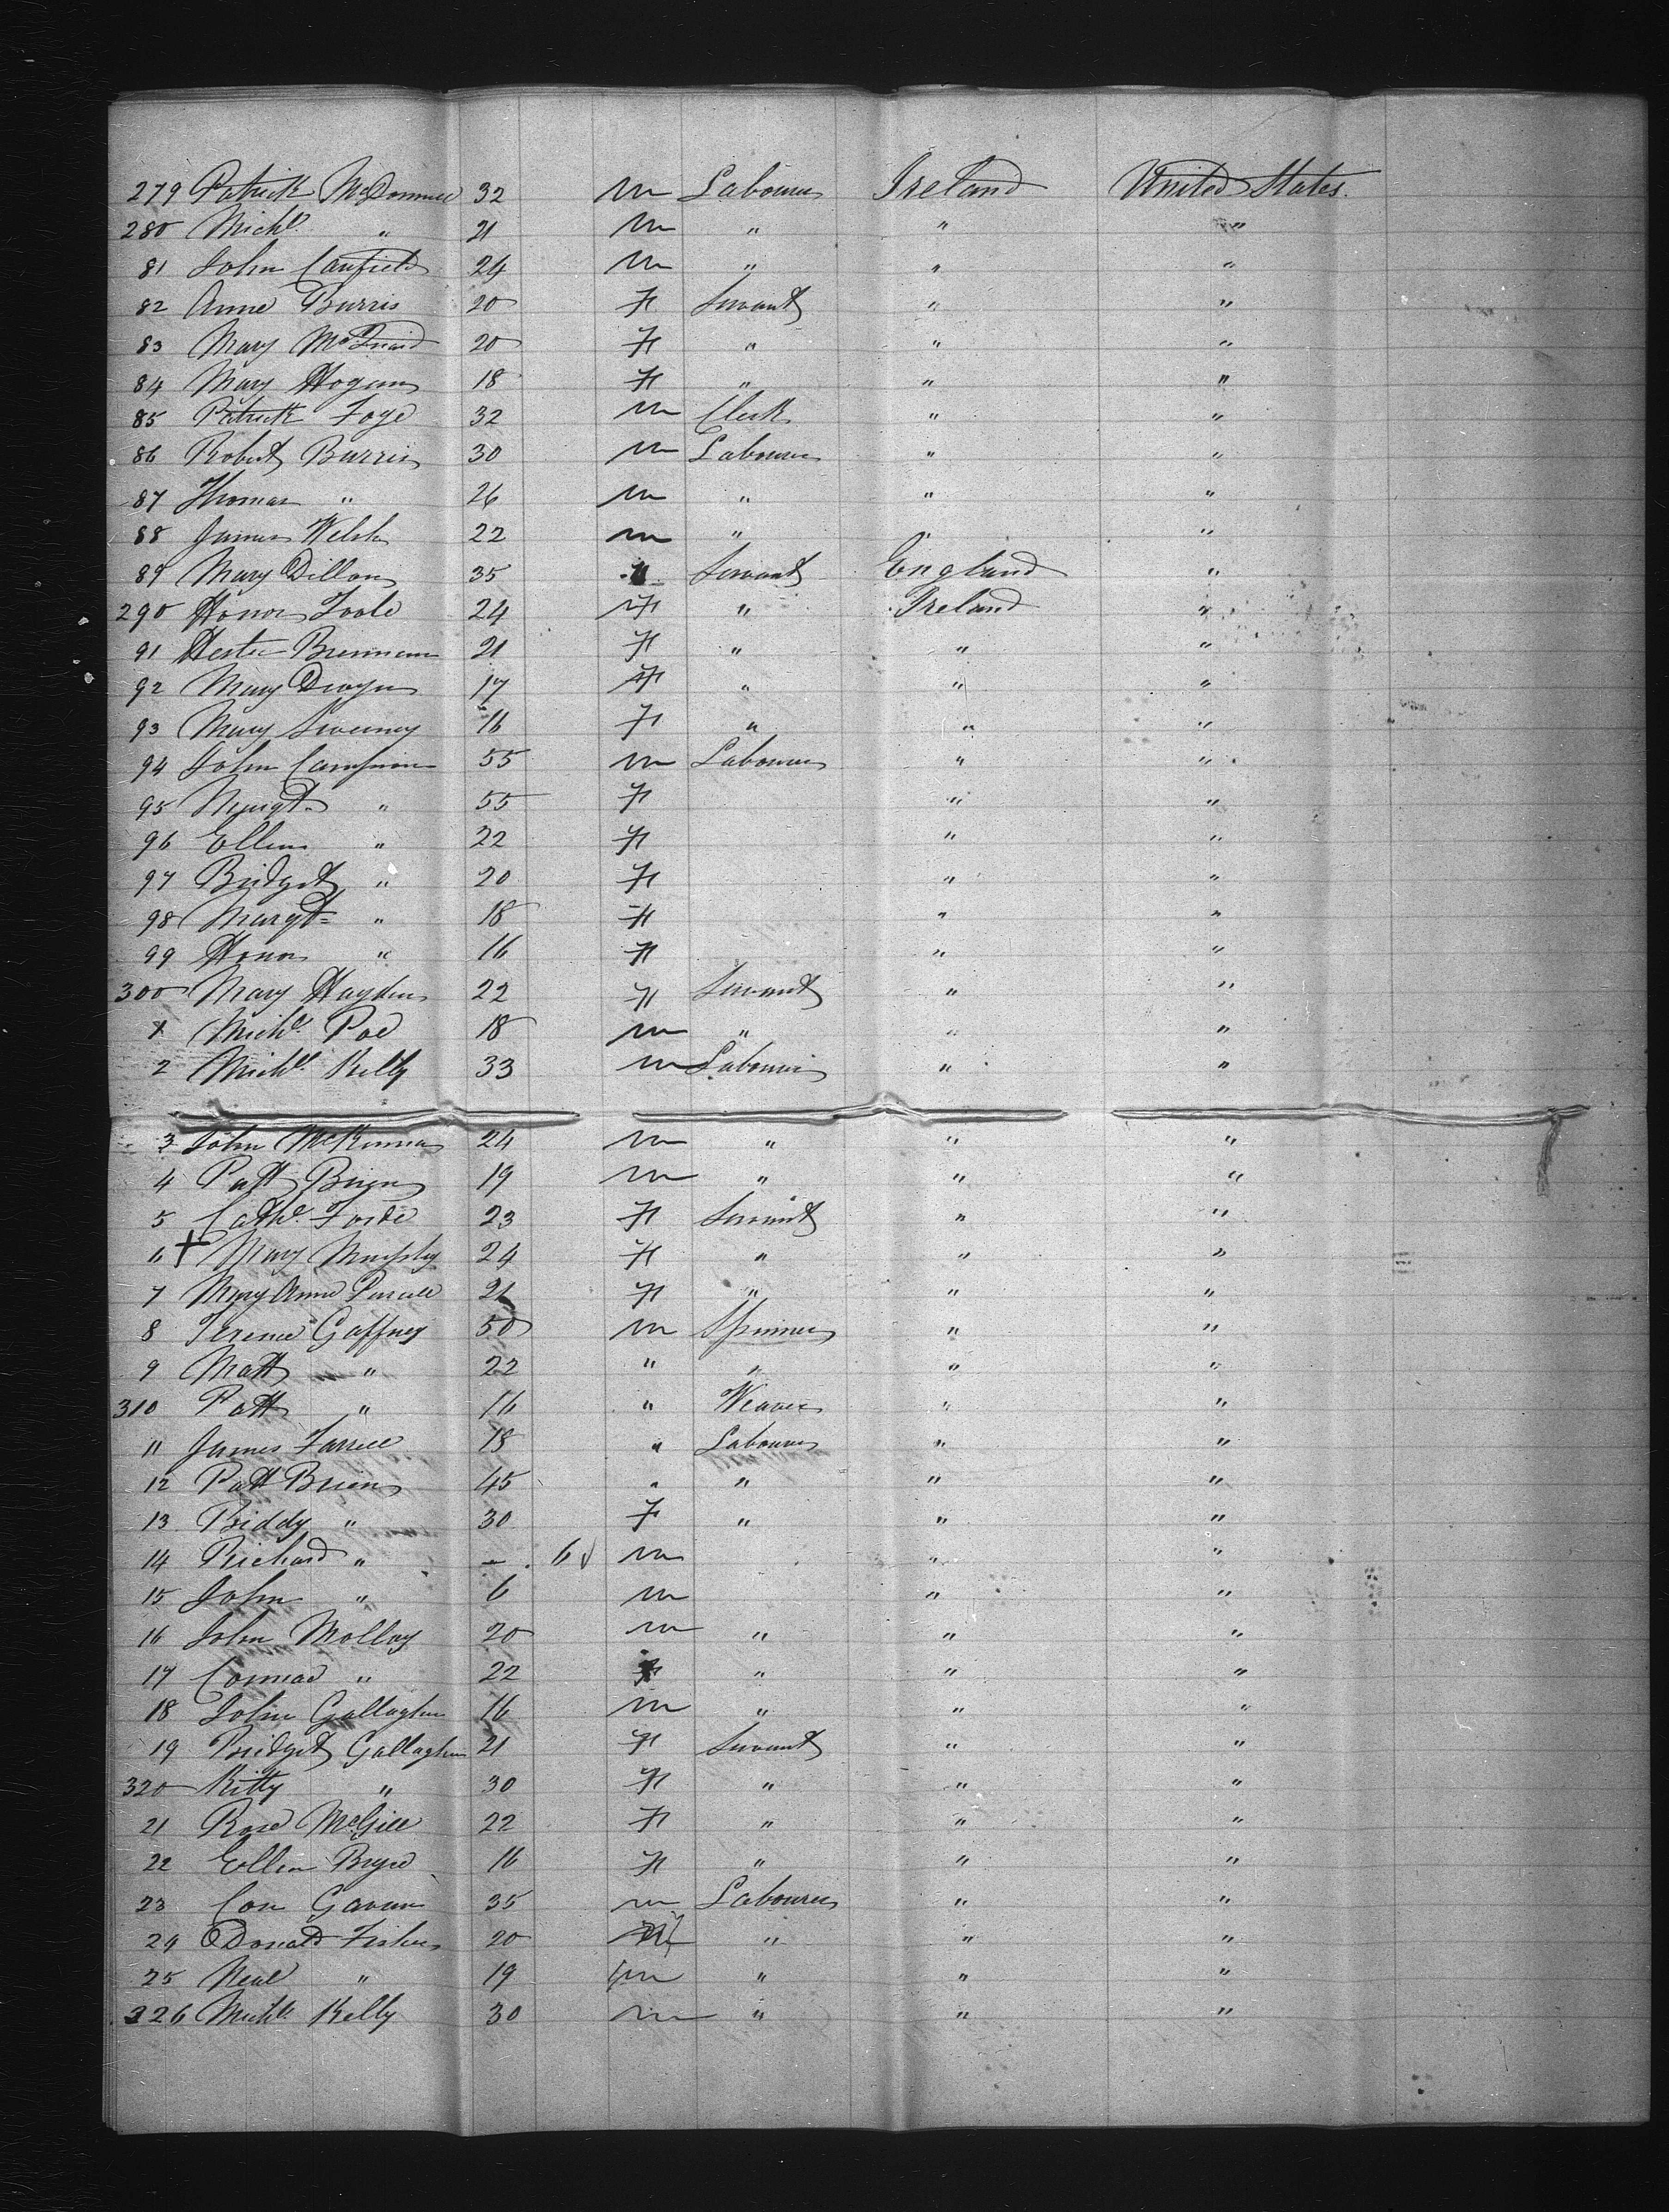 279 Patrick McDonnell 32 m Labourer Ireland United States.
280 Michl. " 21 m " " "
81 John Canfield 24 m " " "
82 Anne Burris 20 F Servant " "
83 Mary McQuaid 20 F " " "
84 Mary Hogan 18 F " " "
85 Patrick Foye 32 m Clerk " "
86 Robert Burris 30 m Labourer " "
87 Thomas " 26 m " " "
88 James Welsh 22 m " "
89 Mary Dillon 35 Servant England "
290 Honor Toole 24 F " Ireland "
91 Hester Brennan 21 F " " "
92 Mary Dwyer 17 F " " "
93 Mary Sweeney 16 F " " "
94 John Campion 55 m Labourer " "
95 Margt. " 55 F " "
96 Ellen " 22 F " "
97 Bridget " 20 F " "
98 Margt " 18 F " "
99 Honor " 16 F " "
300 Mary Hayden 22 F Servant " "
1 Michl. Poe 18 m " " "
2 Michl. Kelly 33 m Labourer " "
3 John McKinnon 24 m " " "
4 Patt Brien 19 m " " "
5 Cathe. Forde 23 F Servant " "
6 + Mary Murphy 24 F " " "
7 Mary Anne Purcell 21 F " " "
8 Terence Gaffney 50 m Spinner " "
9 Matt " 22 " " " "
310 Patt " 16 " Weaver " "
11 James Farrell 18 " Labourer " "
12 Patt Brien 45 " " " "
13 Biddy " 30 F " " "
14 Richard " – 6 m " "
15 John " 6 m " "
16 John Molloy 20 m " " "
17 " 22 F " " "
18 John Gallagher 16 m " " "
19 Bridget Gallagher 21 F Servant " "
320 Kitty " 30 F " " "
21 Rose McGill 22 F " " "
22 Ellen Bryce 16 F " " "
23 Con Gavan 35 m Labourer " "
24 Donald Fisher 20 m " " "
25 Neal " 19 m " " "
326 Michl. Kelly 30 m " " "